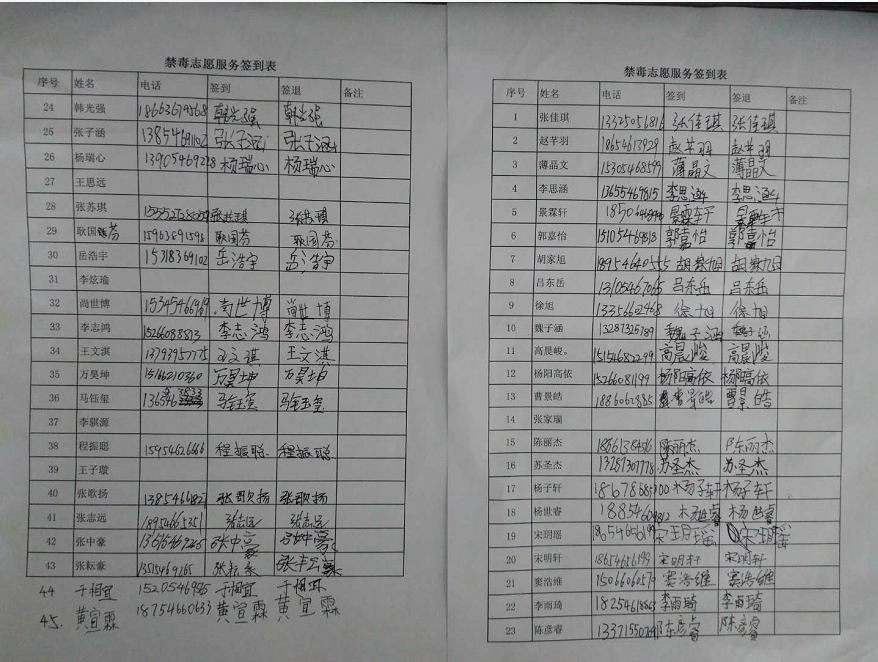 禁毒志愿服务签到表
序号 姓名 电话 签到 签退 备注
24 韩光强 18663679568 韩光强 韩光强
25 张子涵 张子涵
26 杨瑞心 杨瑞心 杨瑞心
27 王思远
28 张苏琪 张苏琪
29 耿国芬 15963891598 耿国芬 耿国芬
30 岳浩宇 15318369102 岳浩宇 岳浩宇
31 李炫瑜
32 尚世博 尚世博 尚世博
33 李志鸿 15266088813 李志鸿 李志鸿
34 王文淇 13793957775 王文淇 王文淇
35 万昊坤 15166210360 万昊坤 万昊坤
36 马钰玺 马钰玺 马钰玺
37 李骐源
38 程振聪 15954626666 程振聪 程振聪
39 王子璇
40 张歌扬 张歌扬 张歌扬
41 张志远 18954665351 张志远 张志远
42 张中豪 张中豪
43 张耘豪 张耘豪
44 于相宜 于相宜 于相宜
45. 黄宣霖 18754660633 黄宣霖 黄宣霖
禁毒志愿服务签到表
序号 姓名 电话 签到 签退 备注
1 张佳琪 13325051816 张佳琪 张佳琪
2 赵芊羽 18654613928 赵芊羽 赵芊羽
3 薄晶文 15305468599 薄晶文 薄晶文
4 李思涵 13655469815 李思涵 李思涵
5 景霖轩 景霖轩 景霖轩
6 郭嘉怡 15105469818 郭嘉怡 郭嘉怡
7 胡家旭 18954640555
8 吕东岳 吕东岳 吕东岳
9 徐旭 13356602468 徐旭 徐旭
10 魏子涵 13287325789 魏子涵
11 高晨峻。 15154682299 高晨峻 高晨峻
12 杨阳高依 15266081199 杨阳高依 杨阳高依
13 曹景皓 曹景皓
14 张家瑞
15 陈丽杰 陈丽杰 陈丽杰
16 苏圣杰 13287307778 苏圣杰 苏圣杰
17 杨子轩 杨子轩 杨子轩
18 杨世睿 杨世睿 杨世睿
19 宋玥瑶 宋玥瑶 宋玥瑶
20 宋明轩 18654656199 宋明轩 宋明轩
21 窦浩维 窦浩维 窦浩维
22 李雨琦 李雨琦 李雨琦
23 陈彦睿 陈彦睿 陈彦睿